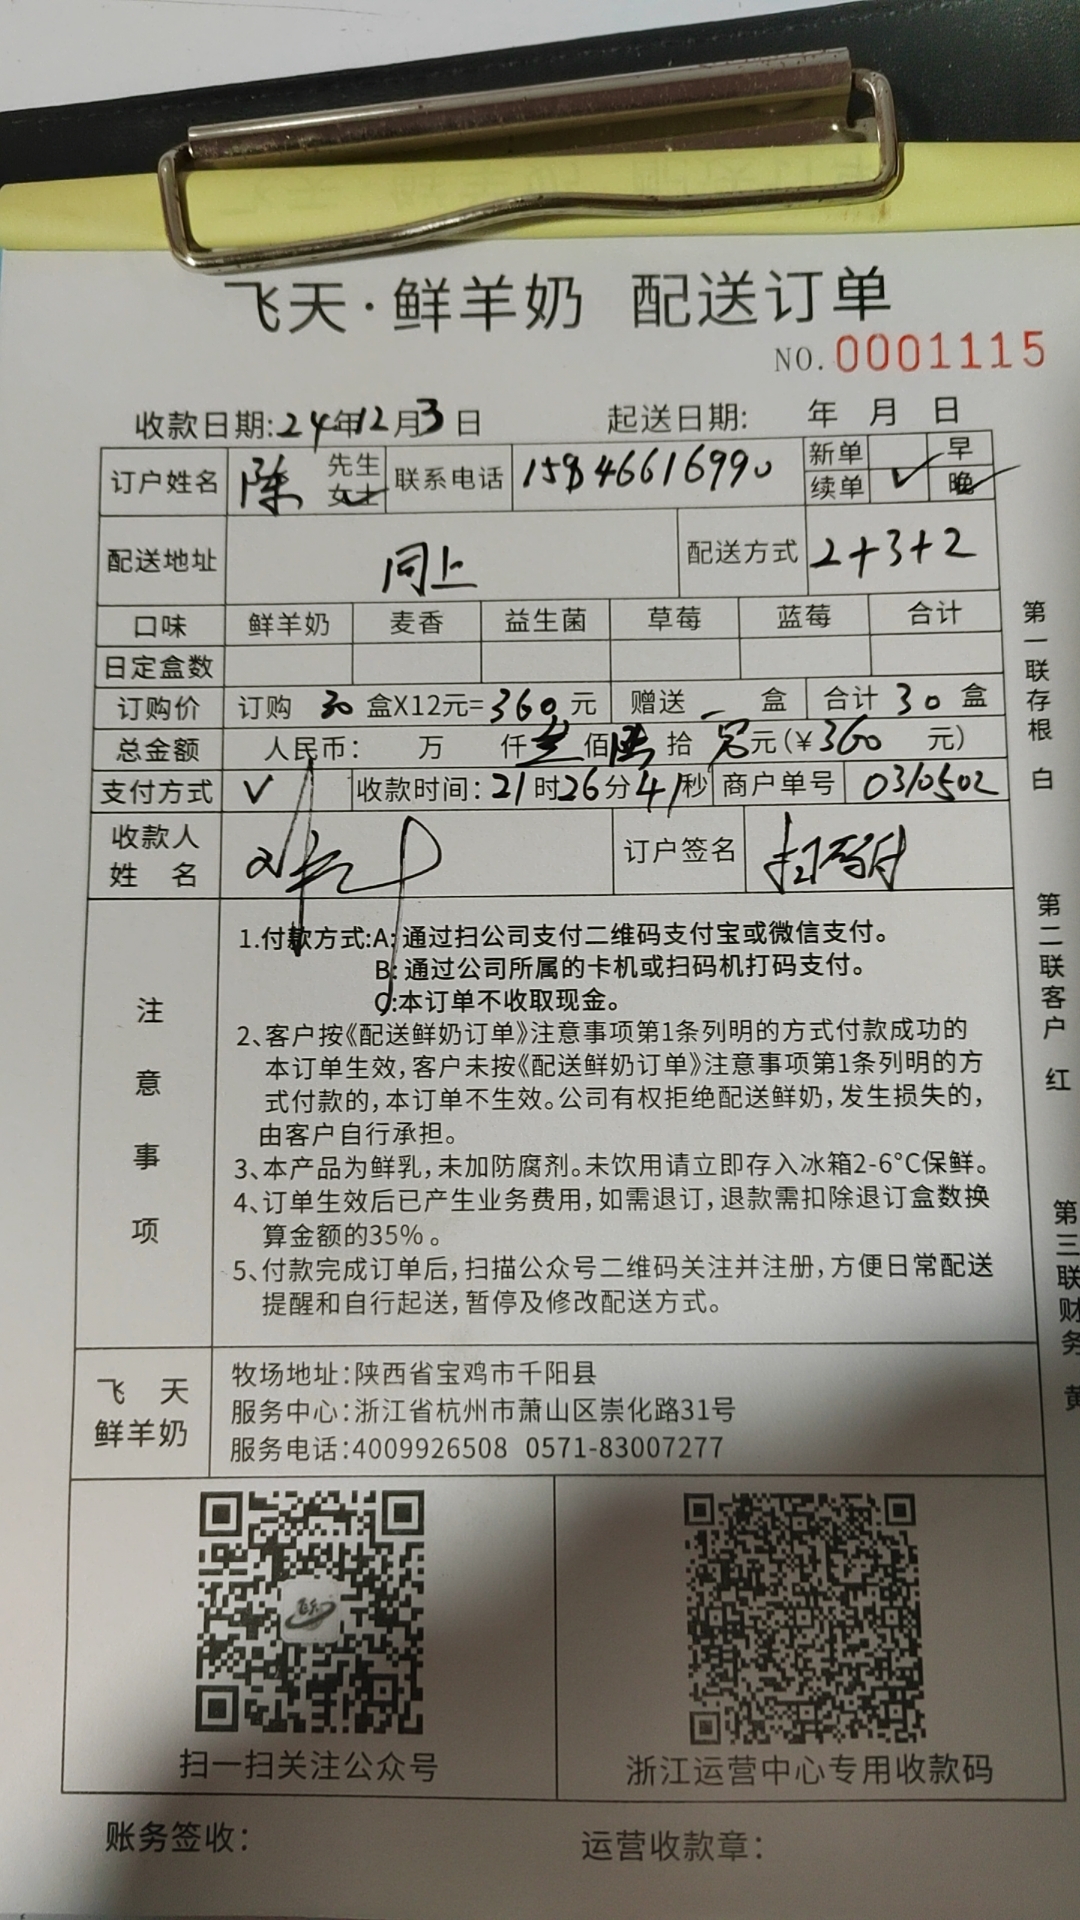 飞天·鲜羊奶 配送订单
NO.0001115
收款日期:24年12月3日 起送日期: 年 月 日
订户姓名 陈 先生 女士 联系电话 15846616990 新单 续单 ✓ 早 晚
配送地址 同上 配送方式 2+3+2
口味 鲜羊奶 麦香 益生菌 草莓 蓝莓 合计
日定盒数
订购价 订购 30 盒X12元=360元 赠送 - 盒 合计 30 盒
总金额 人民币: 万 仟 叁 佰 陆 拾 元(¥360 元)
支付方式 ✓ 收款时间:21时26分41秒 商户单号 0310502
收款人
姓 名
订户签名 扫码付
注意事项
1.付款方式:A:通过扫公司支付二维码支付宝或微信支付。
B:通过公司所属的卡机或扫码机打码支付。
C:本订单不收取现金。
2、客户按《配送鲜奶订单》注意事项第1条列明的方式付款成功的
本订单生效,客户未按《配送鲜奶订单》注意事项第1条列明的方
式付款的,本订单不生效。公司有权拒绝配送鲜奶,发生损失的,
由客户自行承担。
3、本产品为鲜乳,未加防腐剂。未饮用请立即存入冰箱2-6°C保鲜。
4、订单生效后已产生业务费用,如需退订,退款需扣除退订盒数换
算金额的35%。
5、付款完成订单后,扫描公众号二维码关注并注册,方便日常配送
提醒和自行起送,暂停及修改配送方式。
飞 天
鲜羊奶
牧场地址:陕西省宝鸡市千阳县
服务中心:浙江省杭州市萧山区崇化路31号
服务电话:4009926508 0571-83007277
扫一扫关注公众号
浙江运营中心专用收款码
账务签收: 运营收款章:
第一联存根 白
第二联客户 红
第三联财务 黄